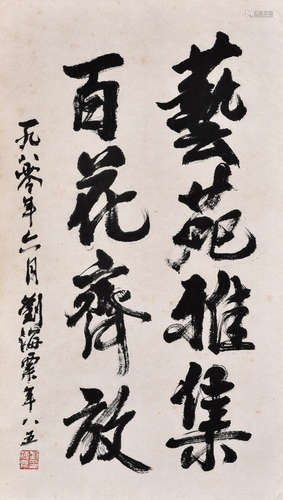 藝苑雅集
百花齊放
一九八〇年六月劉海粟年八五